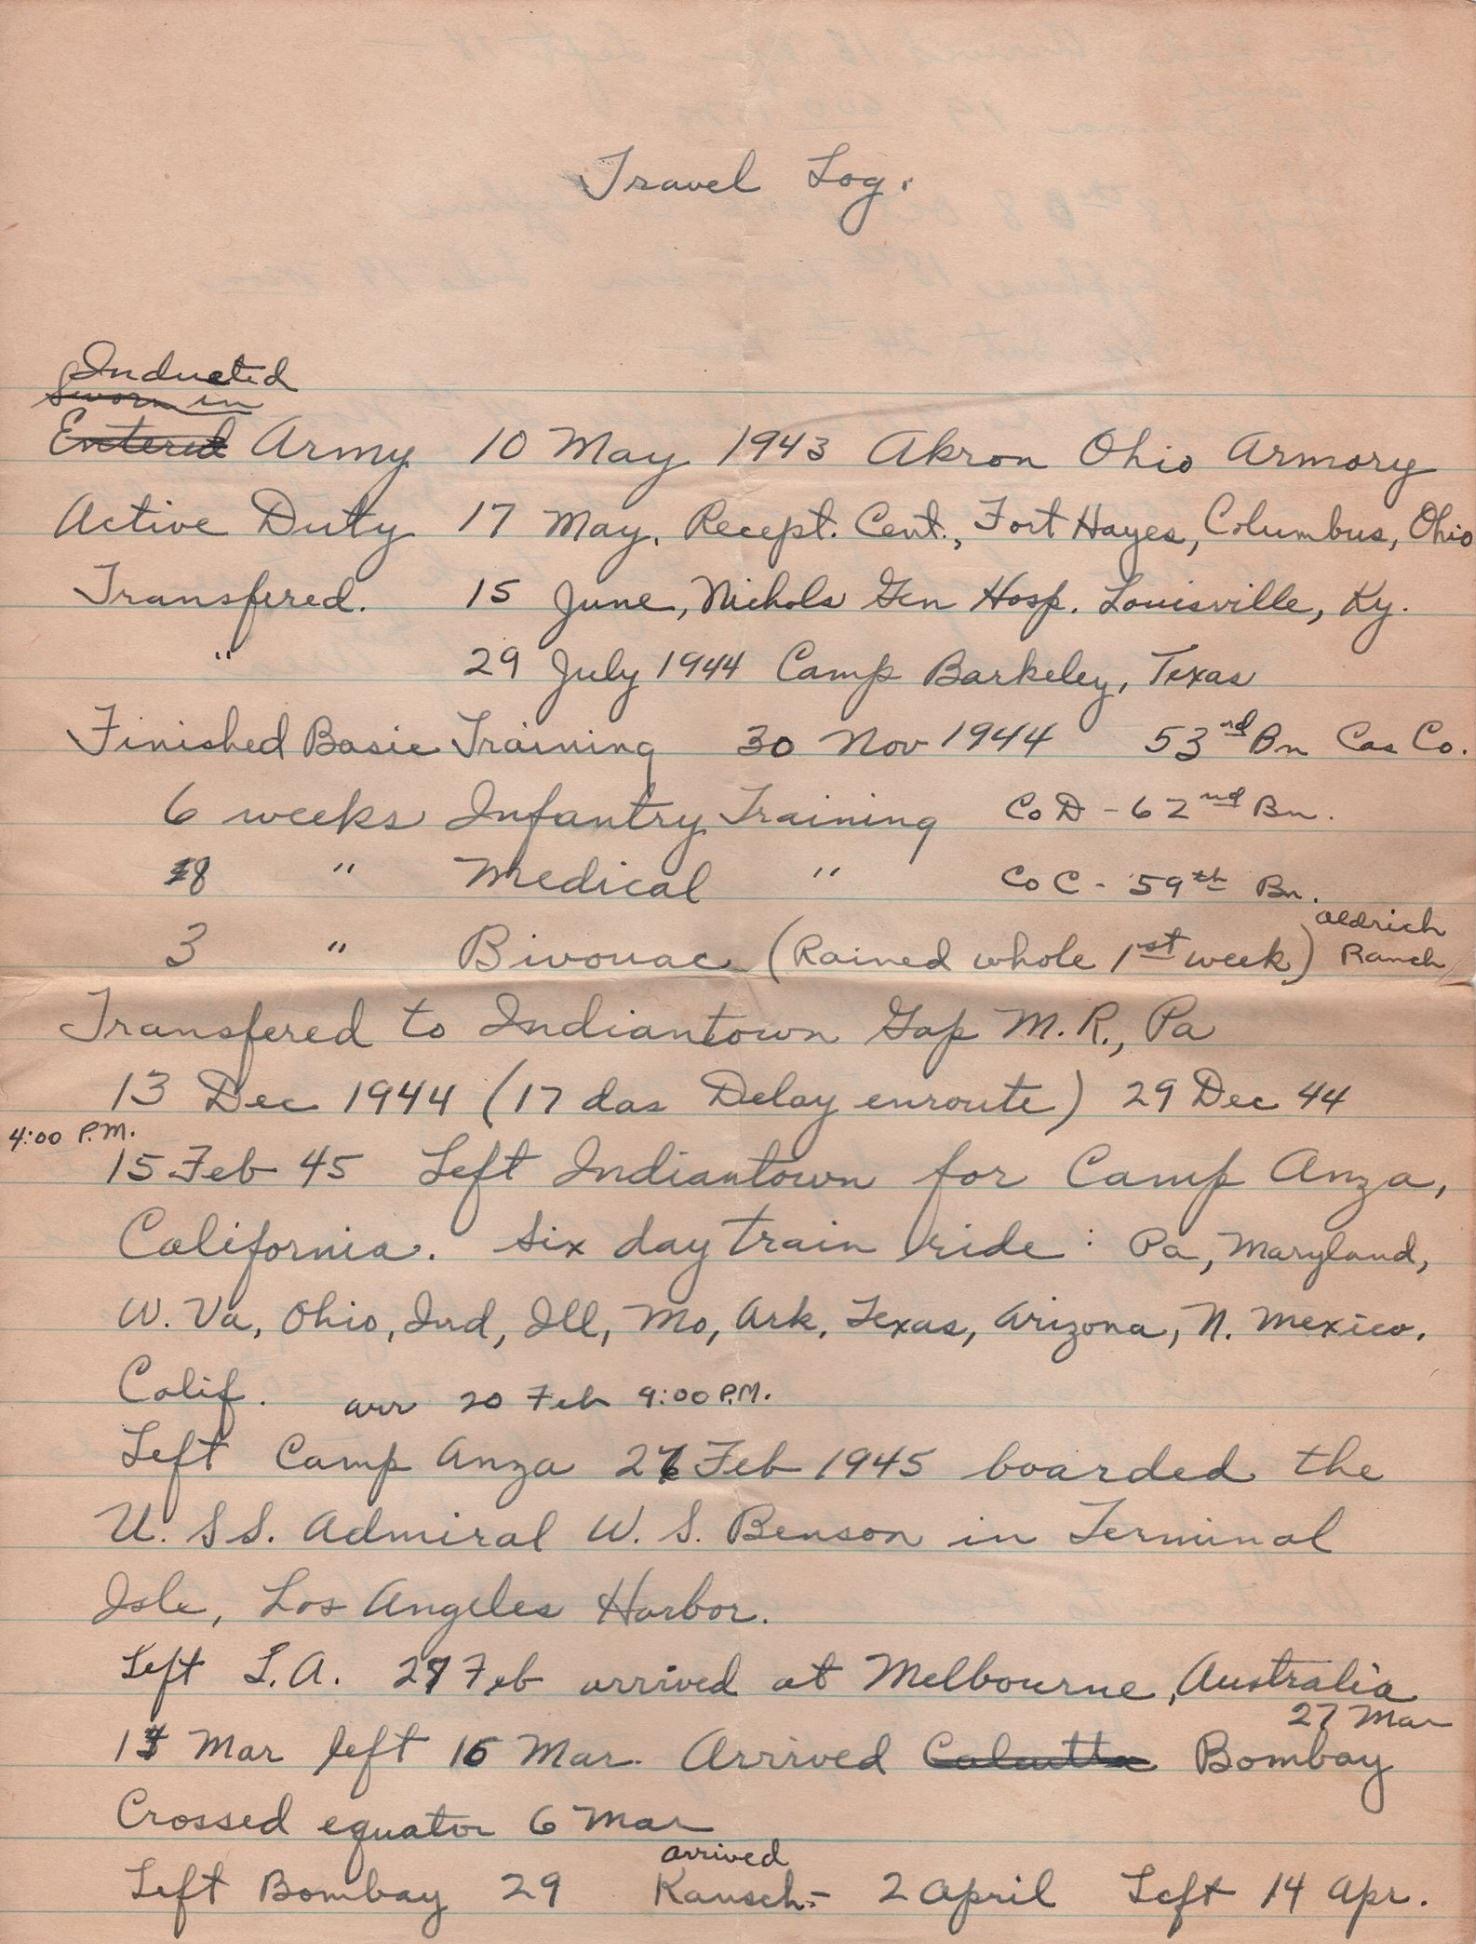 Travel Log.
Inducted
Sworn in
Entered Army 10 May 1943 Akron Ohio Armory
Active Duty 17 May, Recept. Cent., Fort Hayes, Columbus, Ohio
Transfered. 15 June, Nichols Gen Hosp. Louisville, Ky.
" 29 July 1944 Camp Barkeley, Texas
Finished Basic Training 30 Nov 1944 53rd Bn Cas Co.
6 weeks Infantry Training Co D - 62nd Bn.
8 " Medical " Co C - 59th Bn.
3 " Bivouac (Rained whole 1st week) Aldrich Ranch
Transfered to Indiantown Gap M.R., Pa
13 Dec 1944 (17 das Delay enroute) 29 Dec 44
4:00 P.M.
15 Feb 45 Left Indiantown for Camp Anza,
California. Six day train ride : Pa, Maryland,
W. Va, Ohio, Ind, Ill, Mo, Ark, Texas, Arizona, N. Mexico.
Calif. arr 20 Feb 9:00 P.M.
Left Camp Anza 26 Feb 1945 boarded the
U. S S. Admiral W. S. Benson in Terminal
Isle, Los Angeles Harbor.
Left L.A. 27 Feb arrived at Melbourne, Australia
27 Mar
Mar left 16 Mar. Arrived Calcutta Bombay
Crossed equator 6 Mar
arrived
Left Bombay 29 Kansch- 2 April Left 14 Apr.